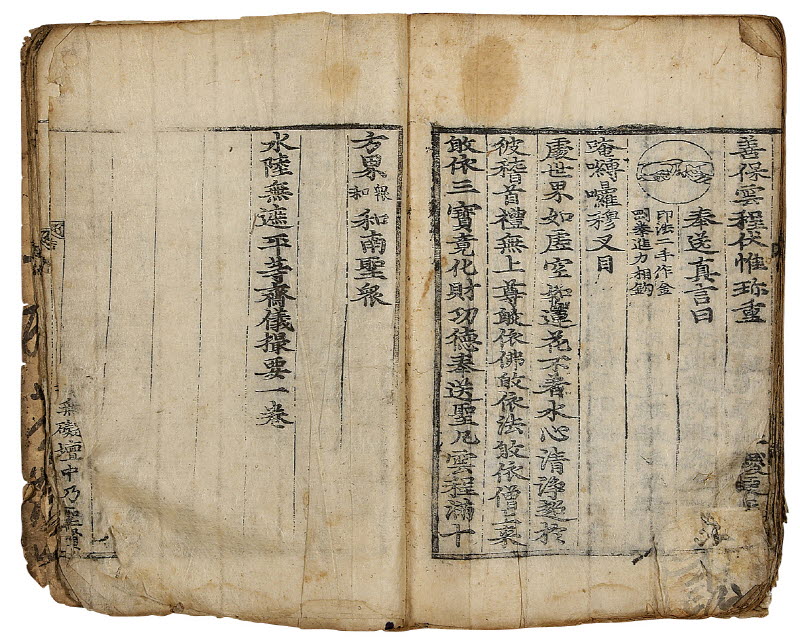 善保雲程伏惟珎重
奉送真言曰
印法二手作金
剛拳進力相鈎
唵嚩囉穆叉目
處世界如虛空如蓮花不着水心清淨超於
彼稽首禮無上尊皈依佛皈依法皈依僧上來
皈依三寶竟化財功德奉送聖凡雲程滿十
方界衆和和南聖衆
水陸無遮平等齋儀撮要一卷
壇中乃聖賢